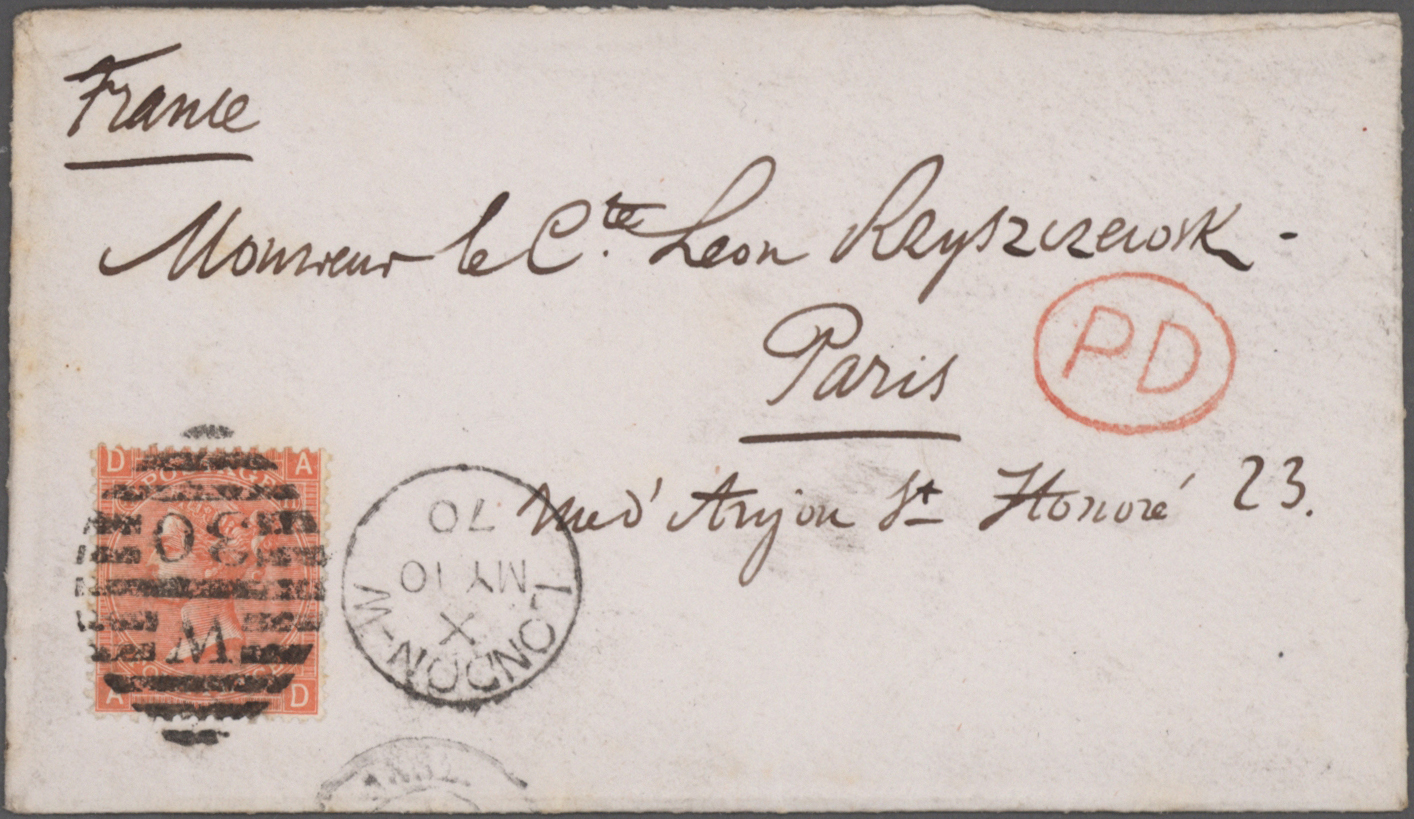 France
Monsieur le Cte. Leon Rzyszczewsk -
Paris
PD
Anjou St Honoré 23.
D A
POSTAGE
30
W
A D
LONDON-W
X
MY 10
70